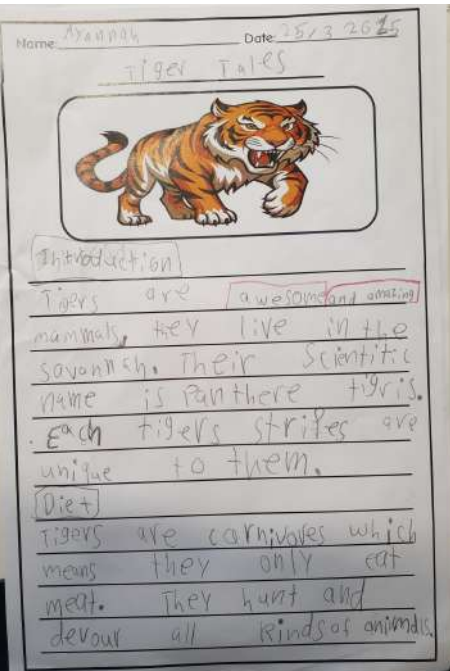 Name: Ayannah Date: 25/3 2025
Tiger Tales
Introduction
Tigers are awesome and amazing
mammals, they live in the
savannah. Their Scientific
name is Panthere tigris.
Each tigers stripes are
unique to them.
Diet
Tigers are carnivores which
means they only eat
meat. They hunt and
devour all kinds of animals.